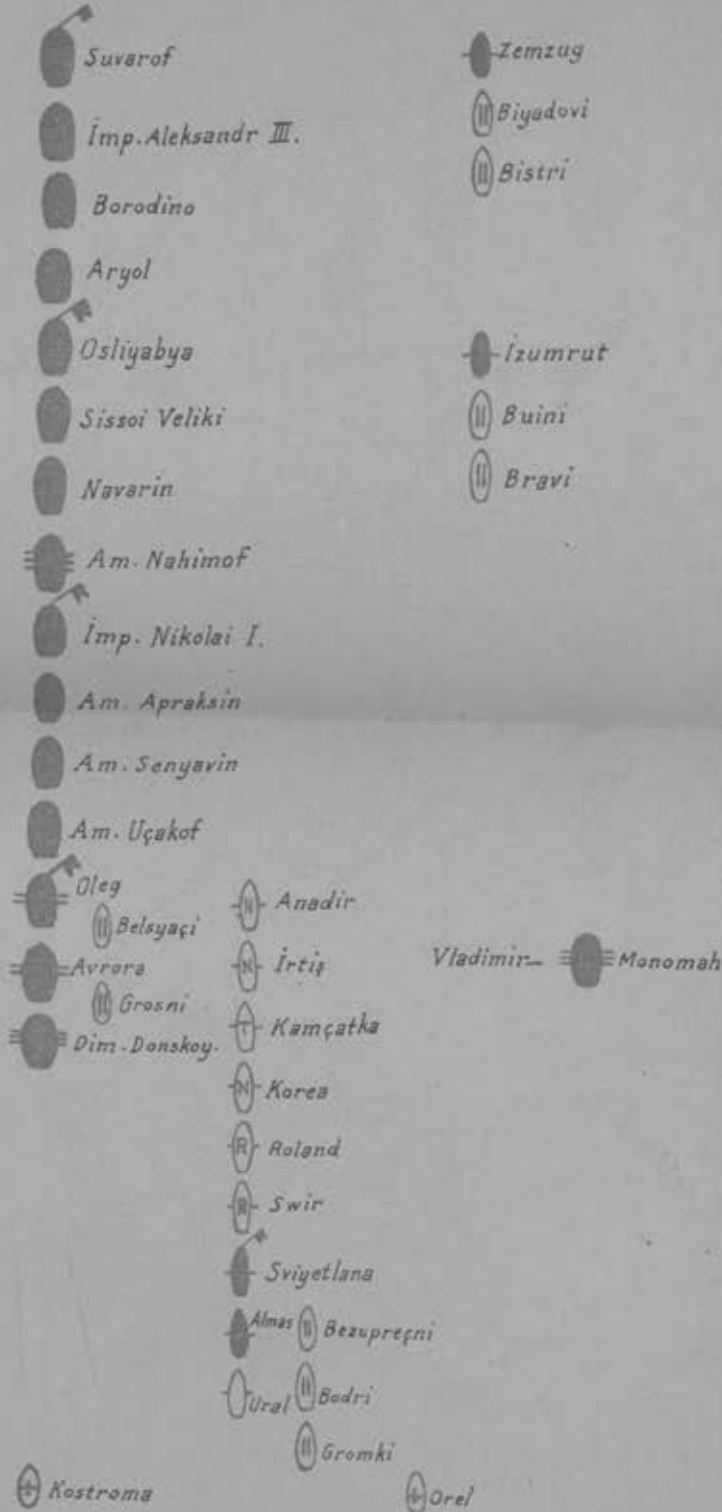 Suvarof
İmp. Aleksandr III.
Borodino
Aryol
Osliyabya
Sissoi Veliki
Navarin
Am. Nahimof
İmp. Nikolai I.
Am. Apraksin
Am. Senyavin
Am. Uçakof
Oleg
Belsyaçi
Avrora
Grosni
Dim. Donskoy.
Zemzug
Biyadovi
Bistri
İzumrut
Buini
Bravi
N Anadir
N İrtiş
T Kamçatka
N Korea
R Roland
R Swir
Sviyetlana
Almas
Bezupreçni
Ural
Bodri
Gromki
Vladimir Monomah
Kostroma
Orel